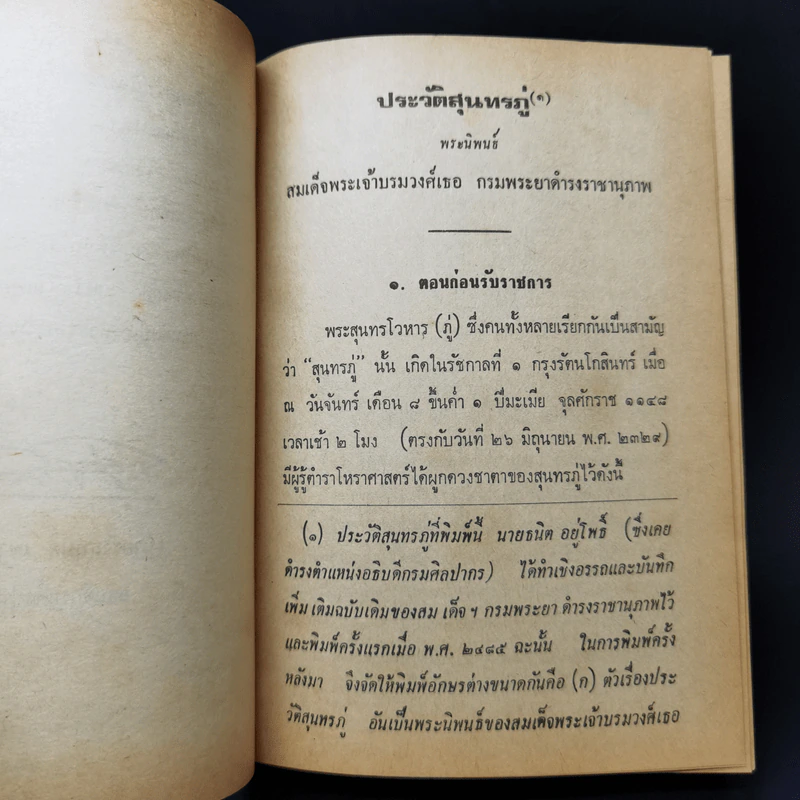 ประวัติสุนทรภู่(๑)
พระนิพนธ์
สมเด็จพระเจ้าบรมวงศ์เธอ กรมพระยาดำรงราชานุภาพ
๑. ตอนก่อนรับราชการ
พระสุนทรโวหาร (ภู่) ซึ่งคนทั้งหลายเรียกกันเป็นสามัญ
ว่า “สุนทรภู่” นั้น เกิดในรัชกาลที่ ๑ กรุงรัตนโกสินทร์ เมื่อ
ณ วันจันทร์ เดือน ๘ ขึ้นค่ำ ๑ ปีมะเมีย จุลศักราช ๑๑๔๘
เวลาเช้า ๒ โมง (ตรงกับวันที่ ๒๖ มิถุนายน พ.ศ. ๒๓๒๙)
มีผู้รู้ตำราโหราศาสตร์ได้ผูกดวงชาตาของสุนทรภู่ไว้ดังนี้
(๑) ประวัติสุนทรภู่ที่พิมพ์นี้ นายธนิต อยู่โพธิ์ (ซึ่งเคย
ดำรงตำแหน่งอธิบดีกรมศิลปากร) ได้ทำเชิงอรรถและบันทึก
เพิ่มเติมฉบับเดิมของสมเด็จฯ กรมพระยาดำรงราชานุภาพไว้
และพิมพ์ครั้งแรกเมื่อ พ.ศ. ๒๔๘๕ ฉะนั้น ในการพิมพ์ครั้ง
หลังมา จึงจัดให้พิมพ์อักษรต่างขนาดกันคือ (ก) ตัวเรื่องประ
วัติสุนทรภู่ อันเป็นพระนิพนธ์ของสมเด็จพระเจ้าบรมวงศ์เธอ